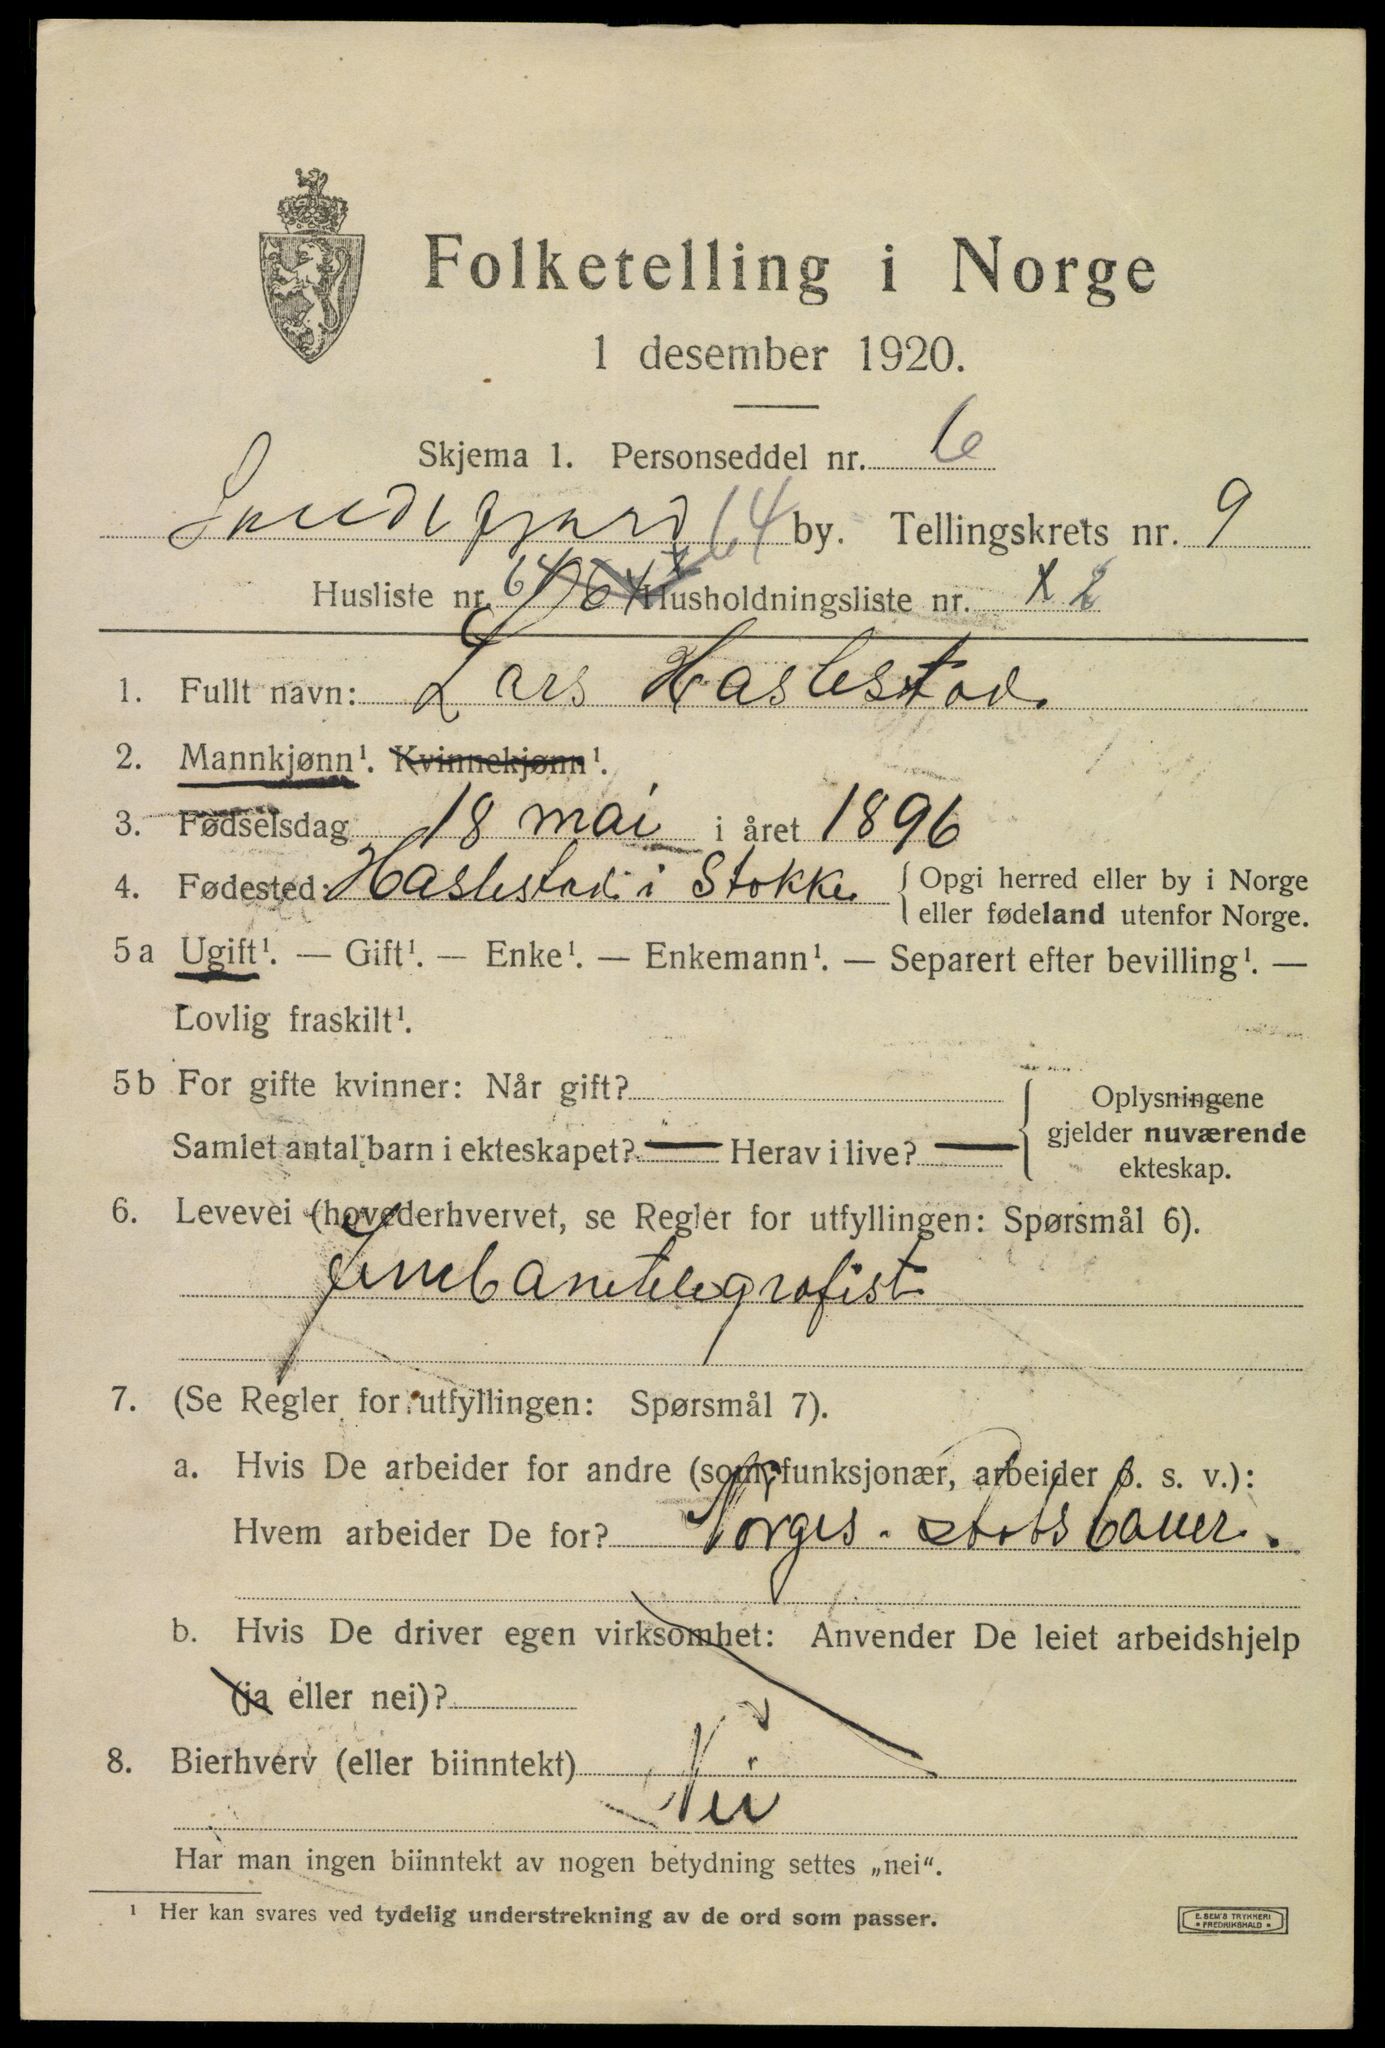 Folketelling i Norge
1 desember 1920.
Skjema 1. Personseddel nr. 6
Sandefjord 64 by. Tellingskrets nr. 9
Husliste nr. 64 Husholdningsliste nr. X 2
1. Fullt navn: Lars Haslestad.
2. Mannkjønn¹. Kvinnekjønn¹.
3. Fødselsdag 18 mai i året 1896
4. Fødested: Haslestad i Stokke { Opgi herred eller by i Norge
eller fødeland utenfor Norge.
5 a Ugift¹. — Gift¹. — Enke¹. — Enkemann¹. — Separert efter bevilling¹. —
Lovlig fraskilt¹.
5 b For gifte kvinner: Når gift? { Oplysningene
gjelder nuværende
Samlet antal barn i ekteskapet? — Herav i live? —
ekteskap.
6. Levevei (hovederhvervet, se Regler for utfyllingen: Spørsmål 6).
Jernbanetelegrafist
7. (Se Regler for utfyllingen: Spørsmål 7).
a. Hvis De arbeider for andre (som funksjonær, arbeider o. s. v.):
Hvem arbeider De for? Norges. statsbaner.
b. Hvis De driver egen virksomhet: Anvender De leiet arbeidshjelp
(ja eller nei)?
8. Bierhverv (eller biinntekt)
Nei
Har man ingen biinntekt av nogen betydning settes „nei“.
¹ Her kan svares ved tydelig understrekning av de ord som passer.
E. SEM'S TRYKKERI
* FREDRIKSHALD *